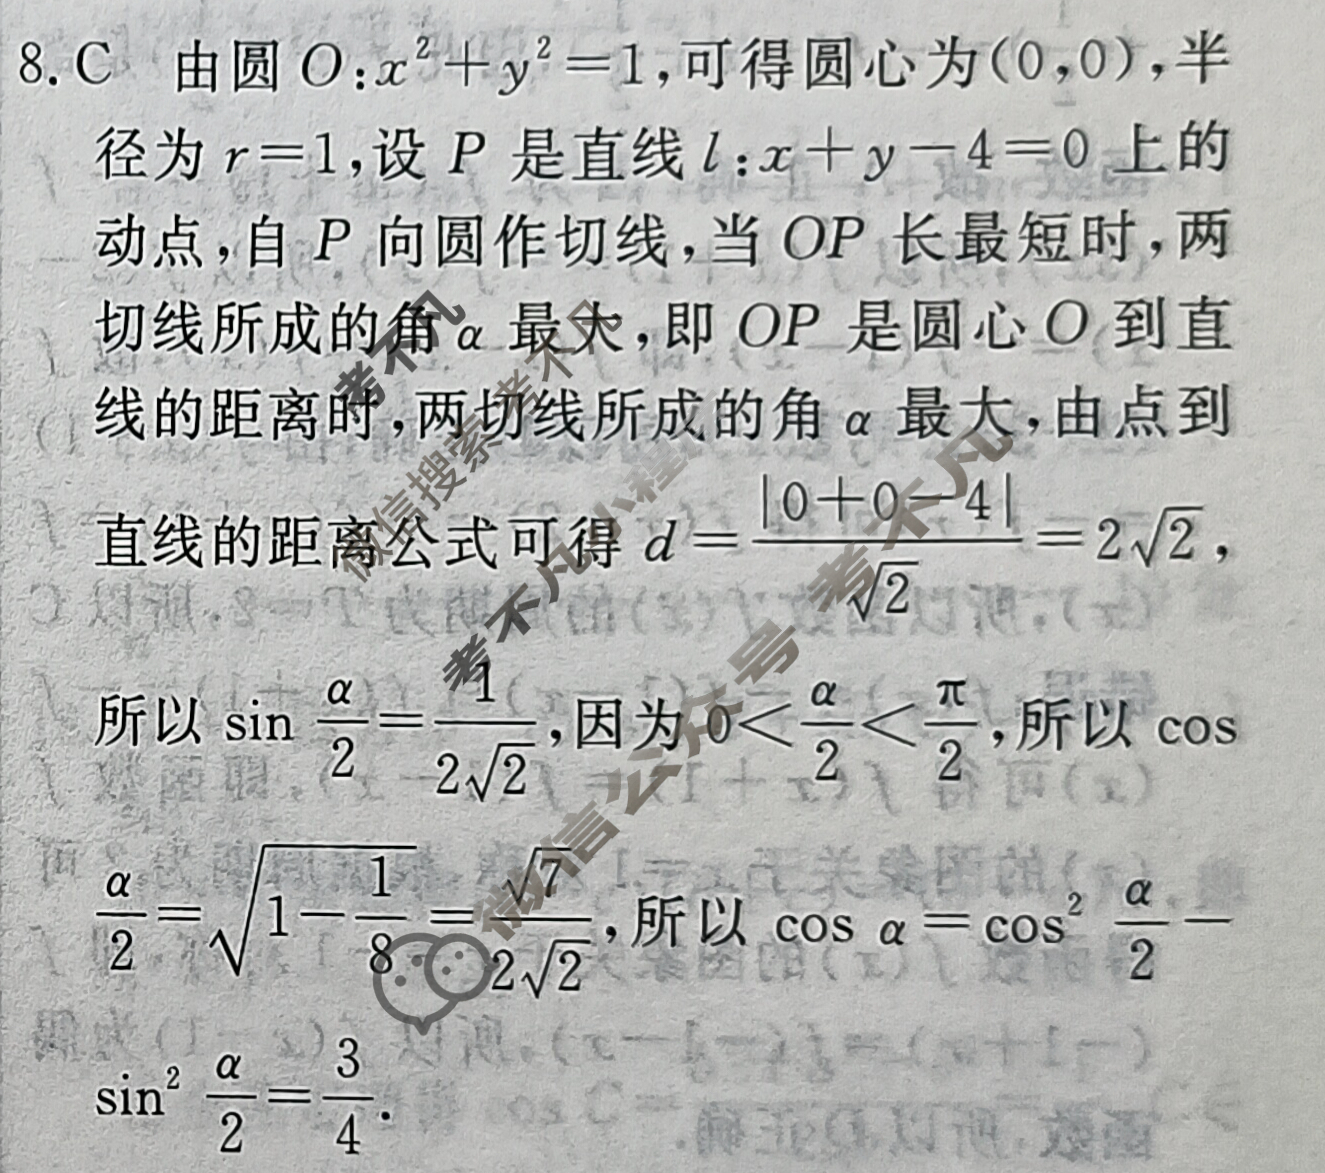 8. C 由圆 O:x²+y²=1,可得圆心为(0,0),半
径为 r=1,设 P 是直线 l:x+y-4=0 上的
动点,自 P 向圆作切线,当 OP 长最短时,两
切线所成的角 α 最大,即 OP 是圆心 O 到直
线的距离时,两切线所成的角 α 最大,由点到
直线的距离公式可得 d=|0+0-4|/√2=2√2,
所以 sin α/2=1/(2√2),因为 0<α/2<π/2,所以 cos
α/2=√(1-1/8)=√7/(2√2),所以 cos α=cos² α/2-
sin² α/2=3/4.
考不凡
微信搜索 考不凡
考不凡小程
微信公众号 考不凡